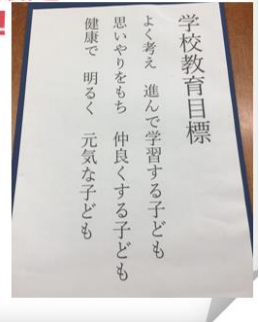 学校教育目標
よく考え　進んで学習する子ども
思いやりをもち　仲良くする子ども
健康で　明るく　元気な子ども